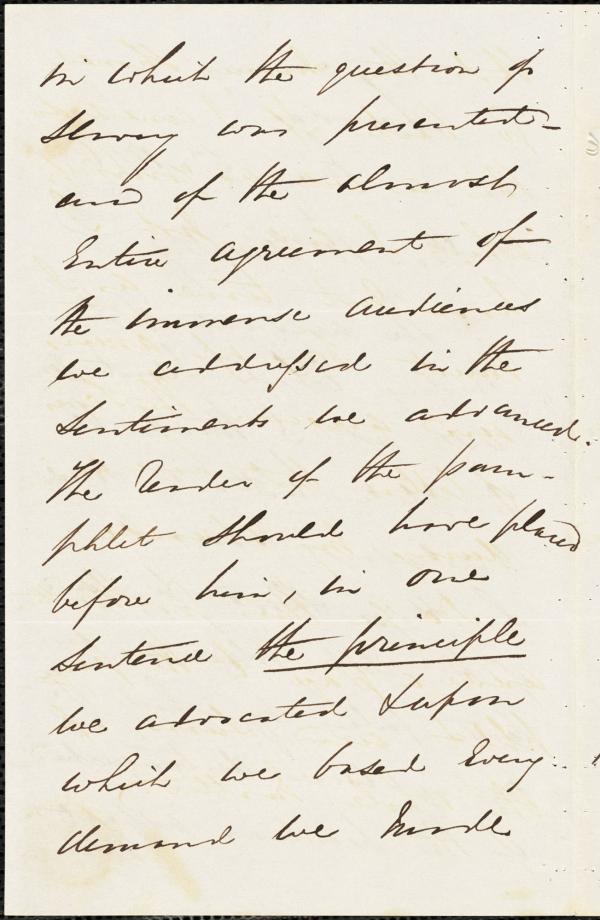 in which the question of
slavery was presented –
and of the almost
Entire agreement of
the immense audiences
we addressed in the
sentiments we advanced.
The Reader of the pam-
phlet should have placed
before him, in one
sentence the principle
we advocated & upon
which we based Every
demand we made